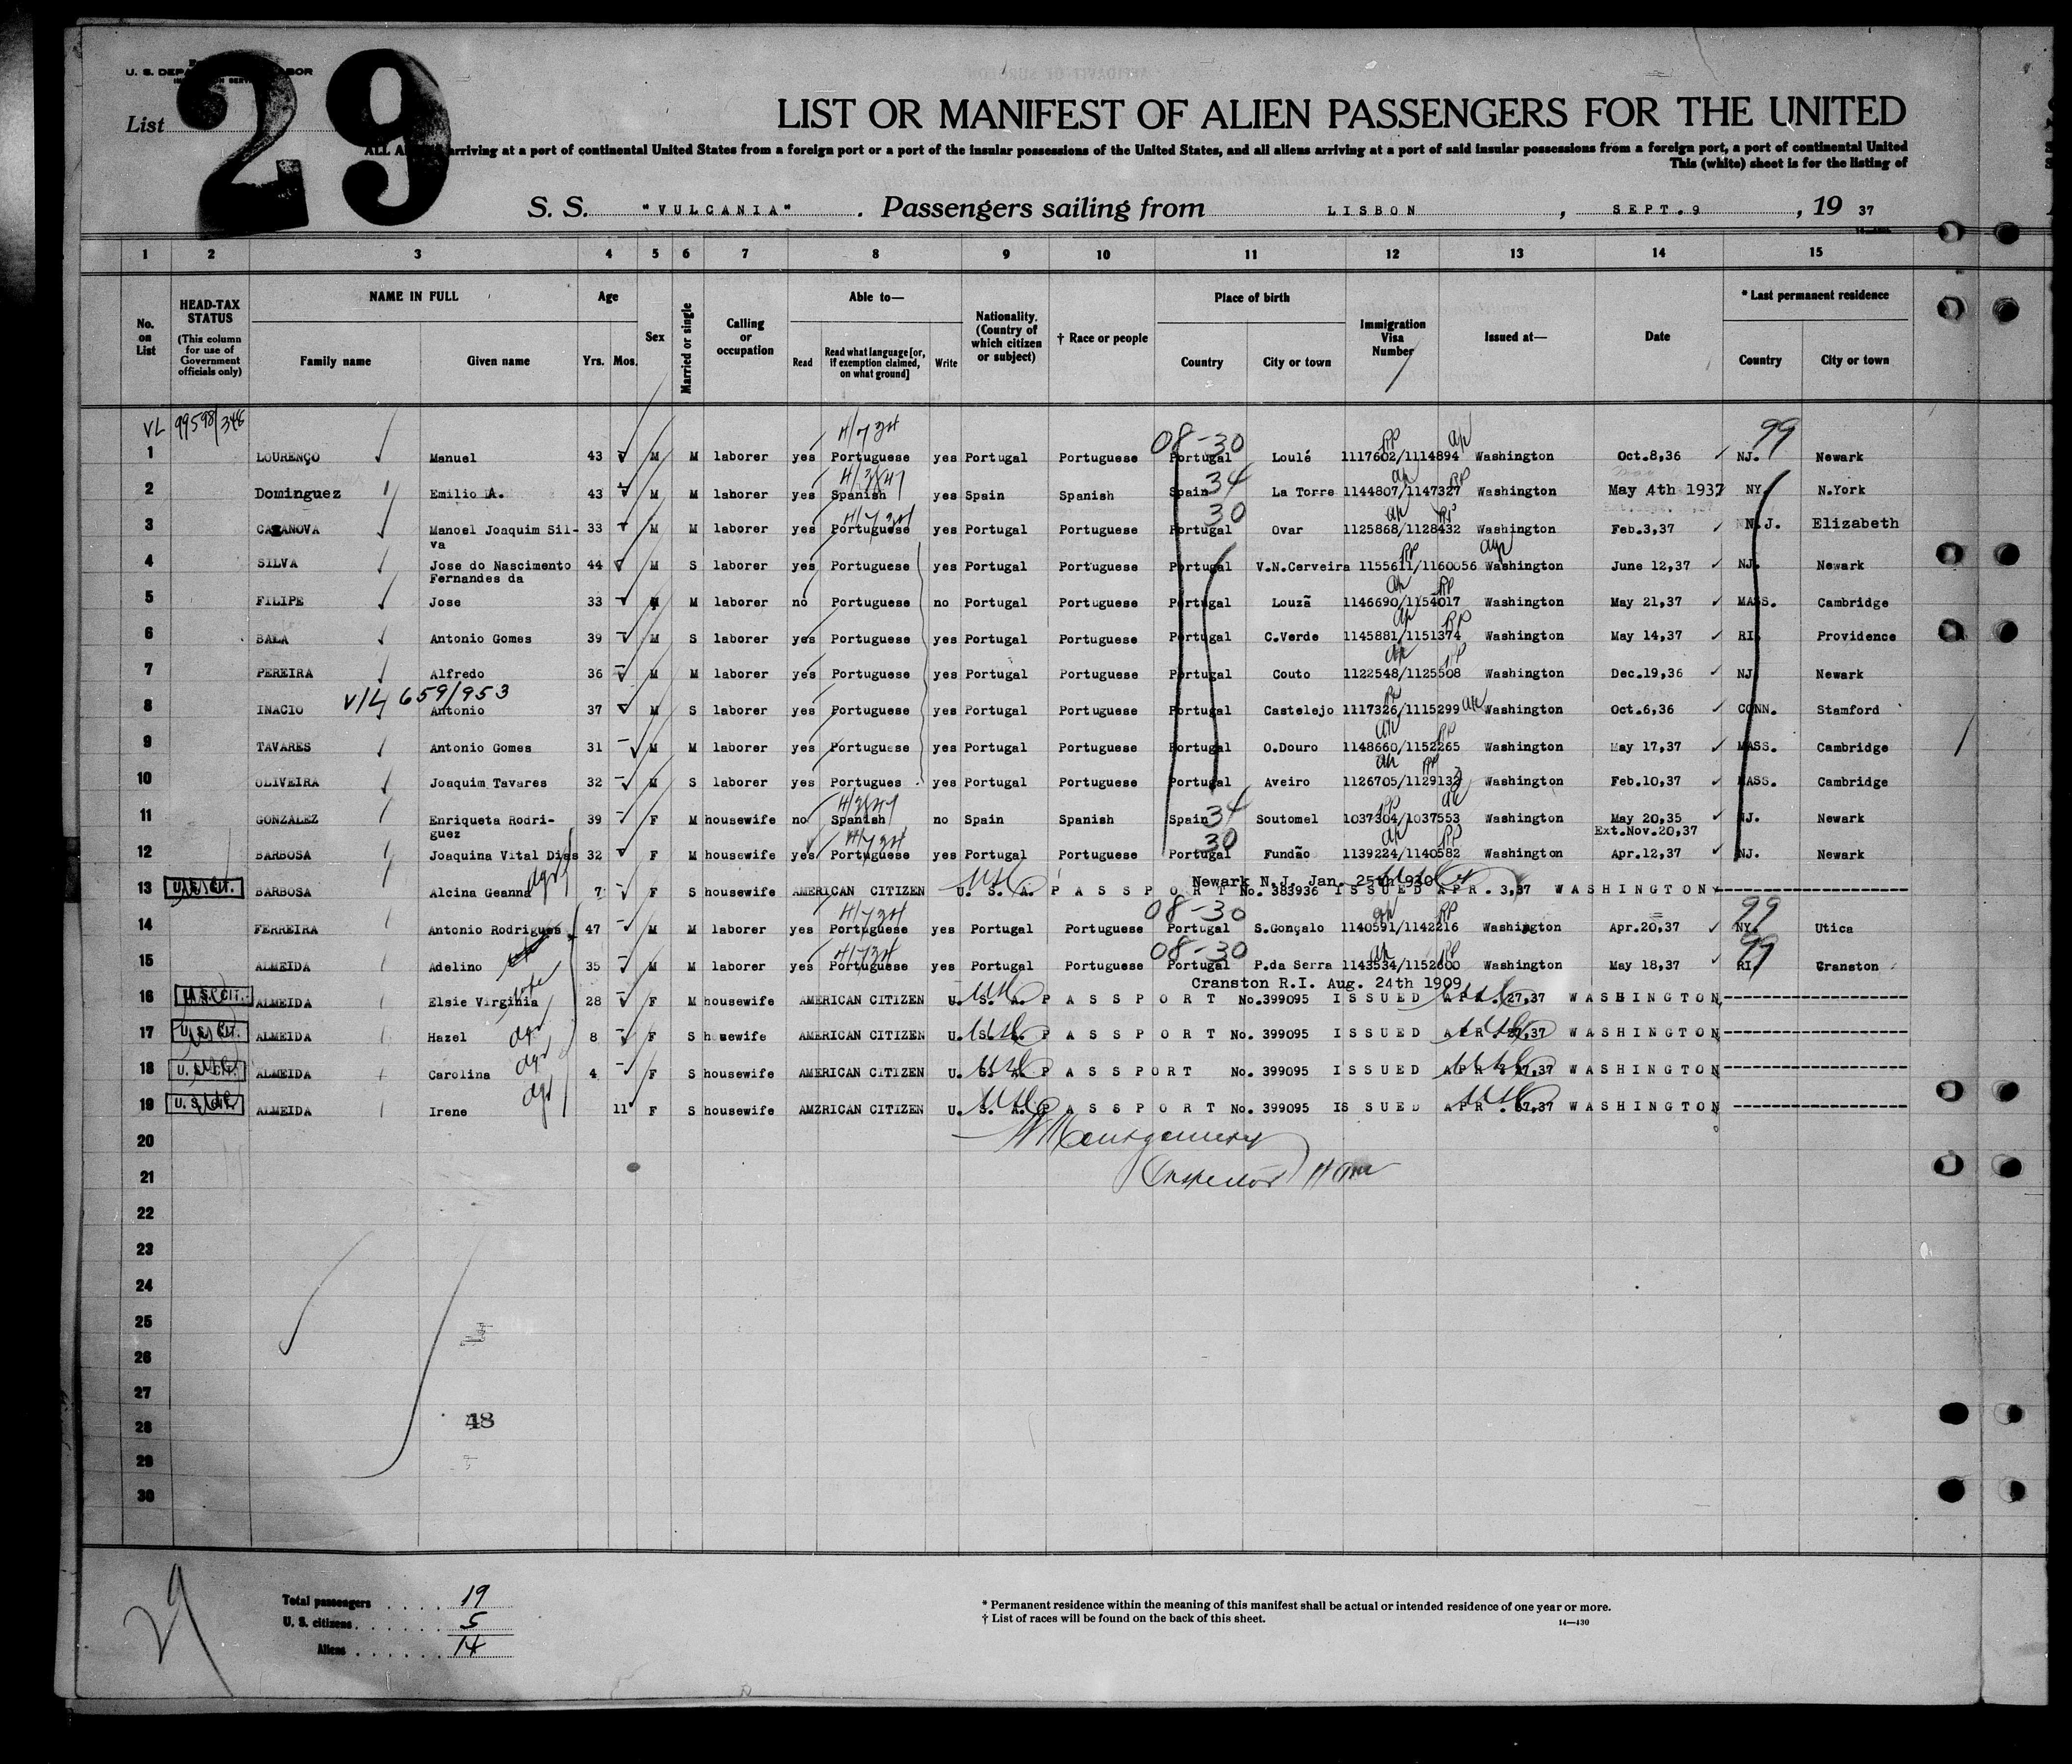 U. S. DEPA LABOR
List 29
LIST OR MANIFEST OF ALIEN PASSENGERS FOR THE UNITED
ALL arriving at a port of continental United States from a foreign port or a port of the insular possessions of the United States, and all aliens arriving at a port of said insular possessions from a foreign port, a port of continental United
This (white) sheet is for the listing of
S. S. "VULCANIA" . Passengers sailing from LISBON , SEPT.9 , 19 37
1 2 3 4 5 6 7 8 9 10 11 12 13 14 15
No. on List HEAD-TAX STATUS (This column for use of Government officials only) NAME IN FULL Family name Given name Age Yrs. Mos. Sex Married or single Calling or occupation Able to— Read Read what language [or, if exemption claimed, on what ground] Write Nationality. (Country of which citizen or subject) † Race or people Place of birth Country City or town Immigration Visa Number Issued at— Date * Last permanent residence Country City or town
VL 99598/348 4/724 08-30 99
1 LOURENÇO Manuel 43 M M laborer yes Portuguese yes Portugal Portuguese Portugal Loulé 1117602/1114894 Washington Oct.8,36 NJ. Newark
2 Dominguez Emilio A. 43 M M laborer yes Spanish yes Spain Spanish Spain 34 La Torre 1144807/1147327 Washington May 4th 1937 NY. N.York
30
3 CASANOVA Manoel Joaquim Sil- 33 M M laborer yes Portuguese yes Portugal Portuguese Portugal Ovar 1125868/1128432 Washington Feb.3,37 N.J. Elizabeth
va
4 SILVA Jose do Nascimento 44 M S laborer yes Portuguese yes Portugal Portuguese Portugal V.N.Cerveira 1155611/1160056 Washington June 12,37 NJ. Newark
Fernandes da
5 FILIPE Jose 33 M M laborer no Portuguese no Portugal Portuguese Portugal Louzã 1146690/1154017 Washington May 21,37 MASS. Cambridge
6 BALA Antonio Gomes 39 M S laborer yes Portuguese yes Portugal Portuguese Portugal C.Verde 1145881/1151374 Washington May 14,37 RI. Providence
7 PEREIRA Alfredo 36 M M laborer yes Portuguese yes Portugal Portuguese Portugal Couto 1122548/1125508 Washington Dec.19,36 NJ. Newark
V/L 659/953
8 INACIO Antonio 37 M S laborer yes Portuguese yes Portugal Portuguese Portugal Castelejo 1117326/1115299 Washington Oct.6,36 CONN. Stamford
9 TAVARES Antonio Gomes 31 M M laborer yes Portuguese yes Portugal Portuguese Portugal O.Douro 1148660/1152265 Washington May 17,37 MASS. Cambridge
10 OLIVEIRA Joaquim Tavares 32 M S laborer yes Portugues yes Portugal Portuguese Portugal Aveiro 1126705/1129132 Washington Feb.10,37 MASS. Cambridge
11 GONZALEZ Enriqueta Rodri- 39 F M housewife no Spanish no Spain Spanish Spain 34 Soutomel 1037304/1037553 Washington May 20,35 NJ. Newark
guez Ext.Nov.20,37
30
12 BARBOSA Joaquina Vital Dias 32 F M housewife yes Portuguese yes Portugal Portuguese Portugal Fundão 1139224/1140582 Washington Apr.12,37 NJ. Newark
Newark N.J. Jan. 25th 1930
13 U. S. CIT. BARBOSA Alcina Geanna 7 F S housewife AMERICAN CITIZEN U. S. A. PASSPORT No. 383936 ISSUED APR. 3,37 WASHINGTON
08-30 99
14 FERREIRA Antonio Rodrigues 47 M M laborer yes Portuguese yes Portugal Portuguese Portugal S.Gonçalo 1140591/1142216 Washington Apr.20,37 NY. Utica
08-30 99
15 ALMEIDA Adelino 35 M M laborer yes Portuguese yes Portugal Portuguese Portugal P.da Serra 1143534/1152600 Washington May 18,37 RI. Cranston
Cranston R.I. Aug. 24th 1909
16 U. S. CIT. ALMEIDA Elsie Virginia 28 F M housewife AMERICAN CITIZEN U. S. A. PASSPORT No.399095 ISSUED APR. 27,37 WASHINGTON
17 U. S. CIT. ALMEIDA Hazel 8 F S h usewife AMERICAN CITIZEN U. S. A. PASSPORT No. 399095 ISSUED APR. 27,37 WASHINGTON
18 U. S. CIT. ALMEIDA Carolina 4 F S housewife AMERICAN CITIZEN U. S. A. PASSPORT No. 399095 ISSUED APR. 27,37 WASHINGTON
19 U. S. CIT. ALMEIDA Irene 11 F S housewife AMZRICAN CITIZEN U. S. A. PASSPORT No. 399095 IS SUED APR. 27,37 WASHINGTON
20 Montgomery
21 Inspector
22
23
24
25
26
27
28 48
29
30
29
Total passengers . . . . 19
U. S. citizens . . . . . . 5
Aliens . . . . . . 14
* Permanent residence within the meaning of this manifest shall be actual or intended residence of one year or more.
† List of races will be found on the back of this sheet.
14—430